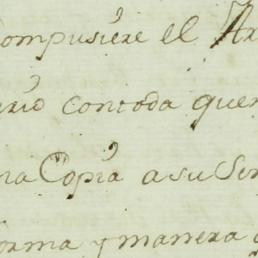 compusiere el Ar
erio con toda quen
na Copia a su Ser
orma y manera q